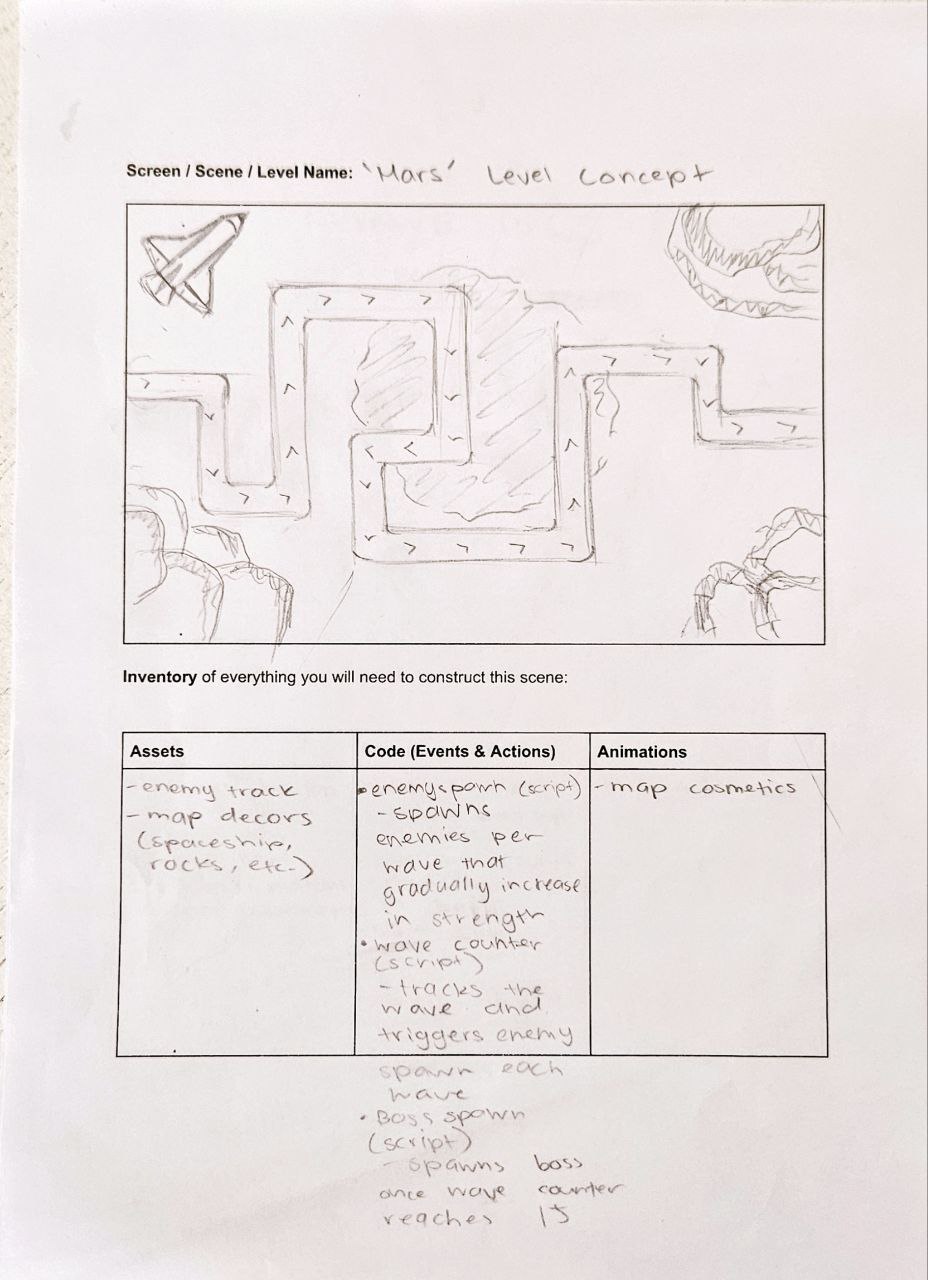 Screen / Scene / Level Name: 'Mars' Level Concept
Inventory of everything you will need to construct this scene:
Assets
- enemy track
- map decors
(spaceship,
rocks, etc.)
Code (Events & Actions)
• enemyspawn (script)
- spawns
enemies per
wave that
gradually increase
in strength
• wave counter
(script)
- tracks the
wave and
triggers enemy
spawn each
wave
• Boss spawn
(script)
- spawns boss
once wave counter
reaches 15
Animations
- map cosmetics